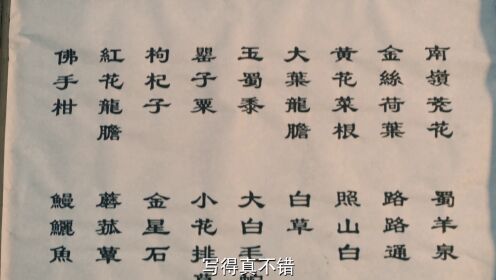 南嶺荛花
金絲荷葉
黃花菜根
大葉龍膽
玉蜀黍
罌子粟
枸杞子
紅花龍膽
佛手柑
蜀羊泉
路路通
照山白
白草
大白毛
小花排
金星石
蘑菰蕈
鰻鱺魚
写得真不错